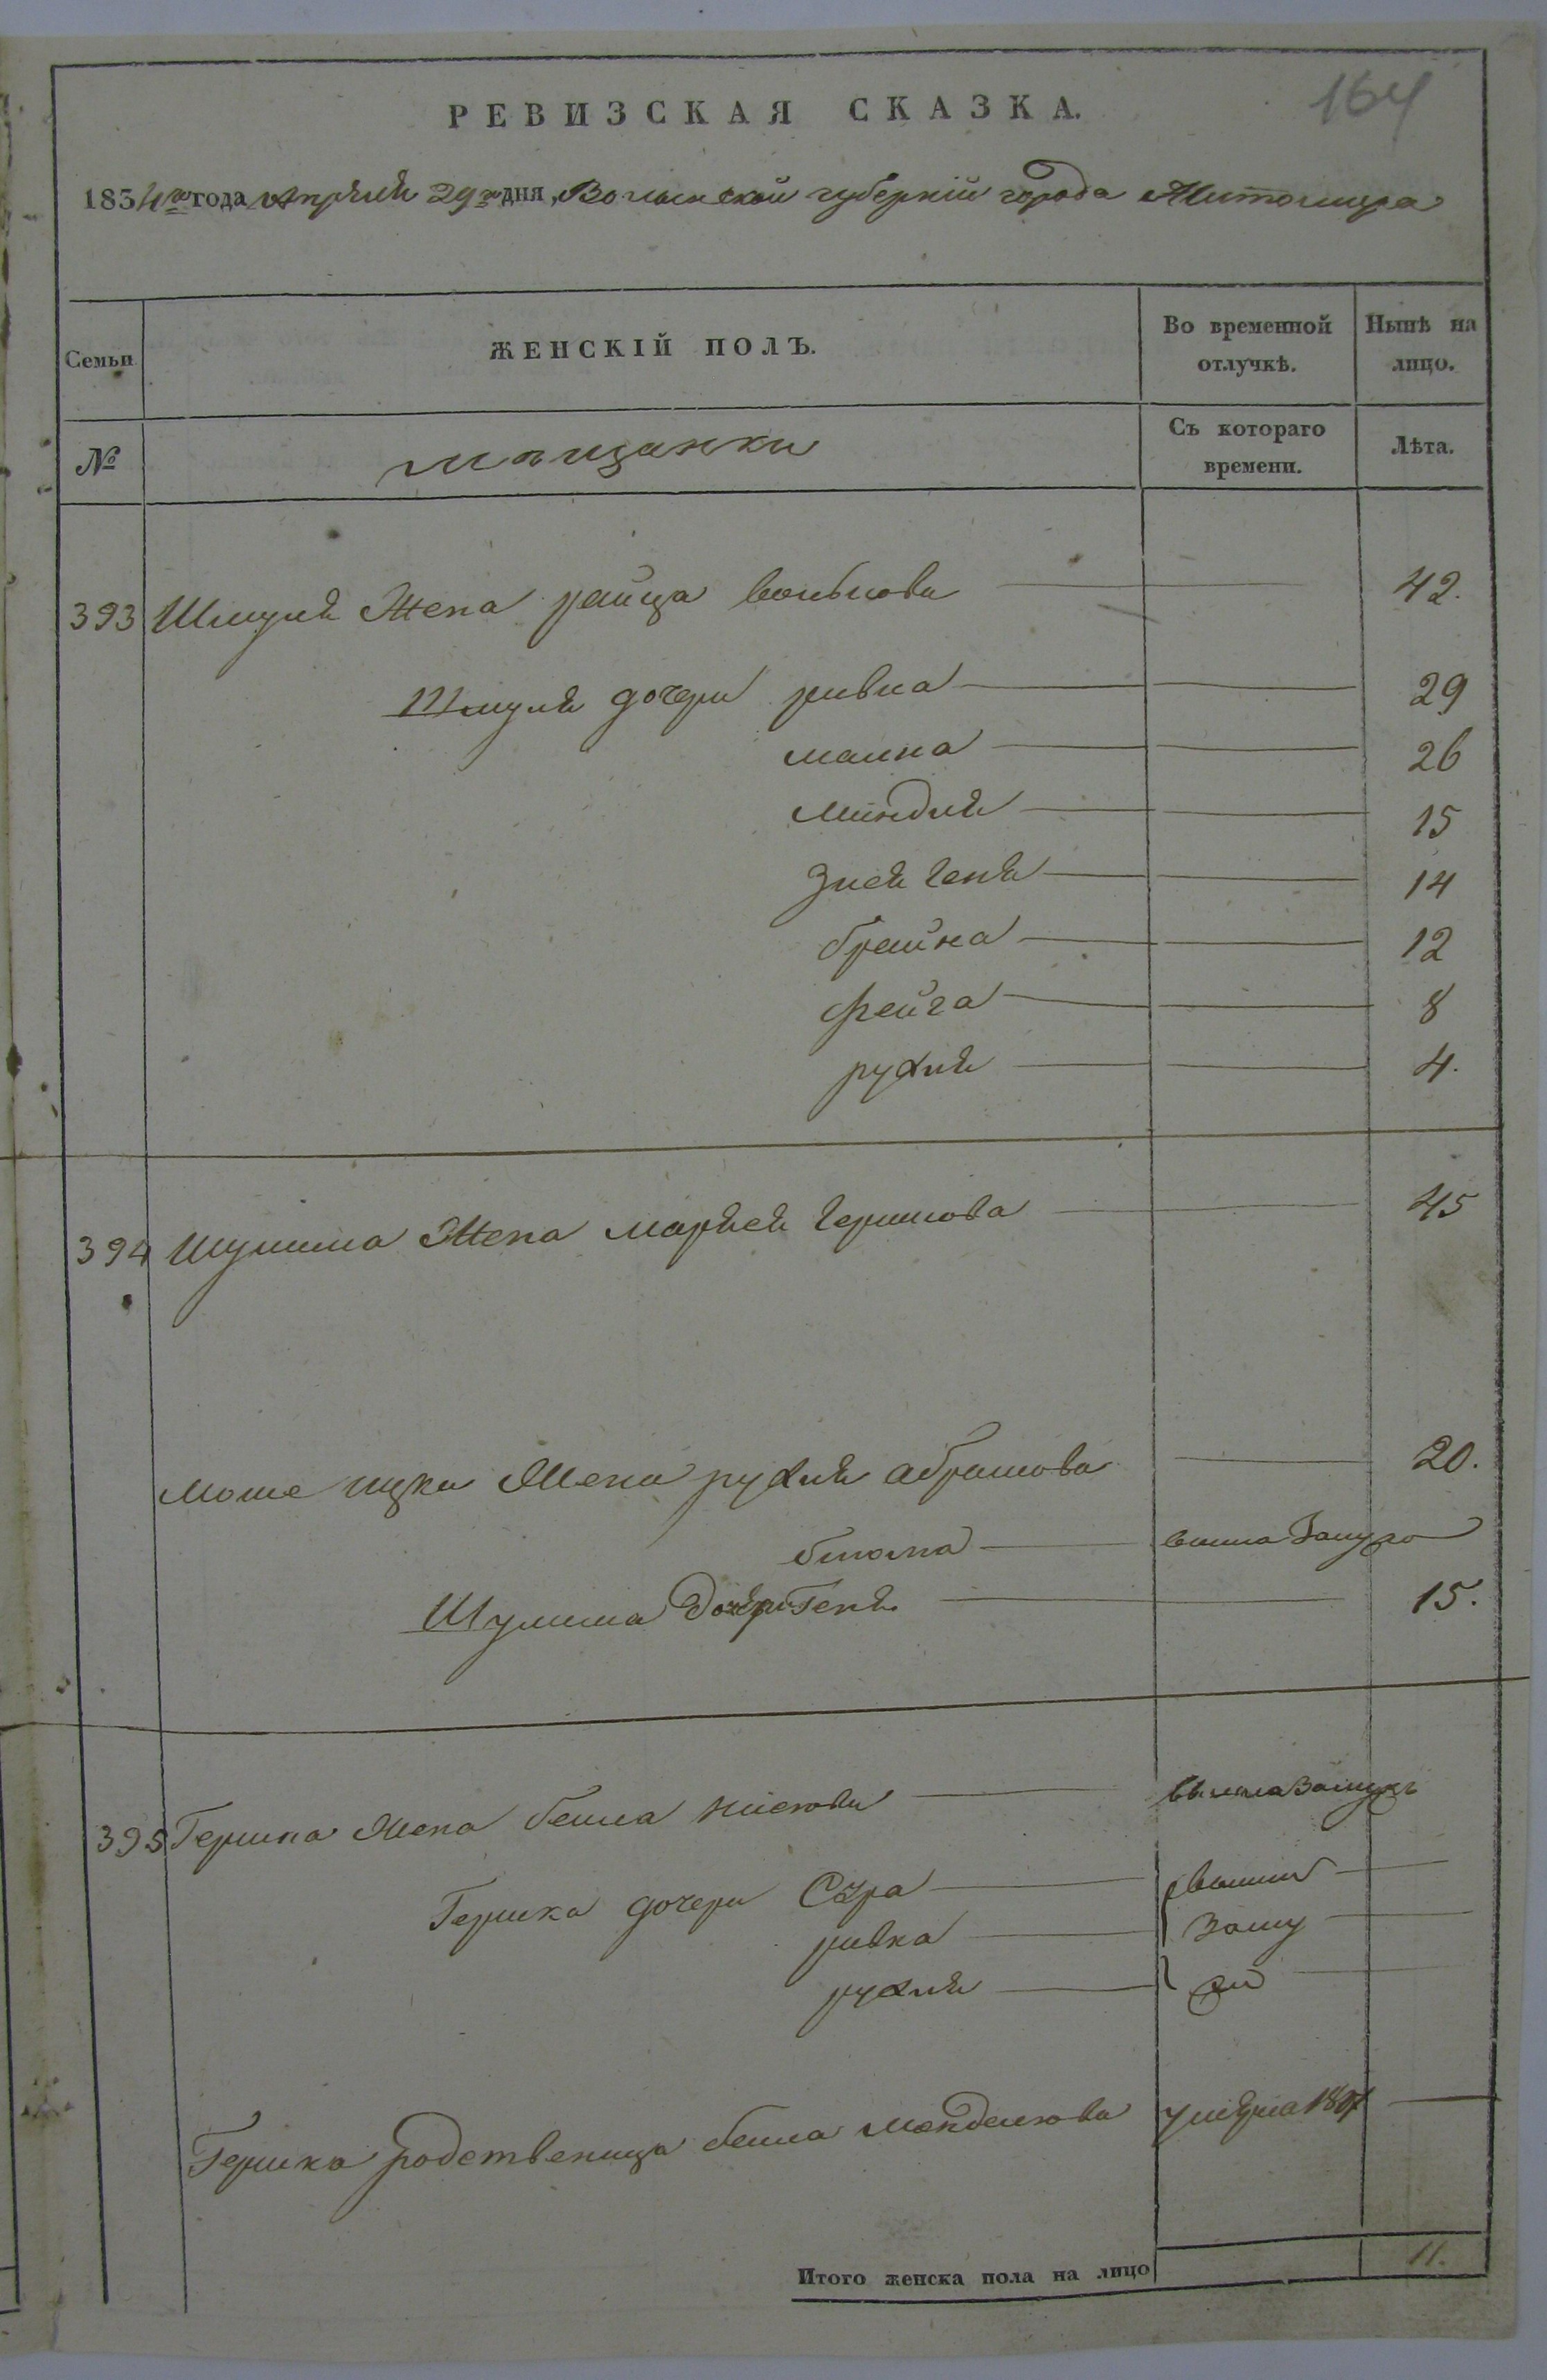 164
РЕВИЗСКАЯ СКАЗКА.
1834го года Апреля 29го дня, Волынской губернии города Житомира
Семьи
ЖЕНСКІЙ ПОЛЪ.
Во временной отлучкѣ.
Нынѣ на лицо.
№
мещанки
Съ котораго времени.
Лѣта.
393 Шмуля Жена райца волькова 42.
Шмуля дочери ривка 29
малка 26
миндля 15
Зися геня 14
брайна 12
фейга 8
рухля 4.
394 Шулима Жена маряся гершкова 45
Моше ицка Жена рухля абрамова 20.
вышла Замуж
Шулима дочери Геня 15.
395 Гершка Жена бейла вышла Замужъ
Гершка дочери Сура вышли
ривка Заму
рухля жи
Гершка родственица бейла Мендельова умерла 18
Итого женска пола на лицо 11.